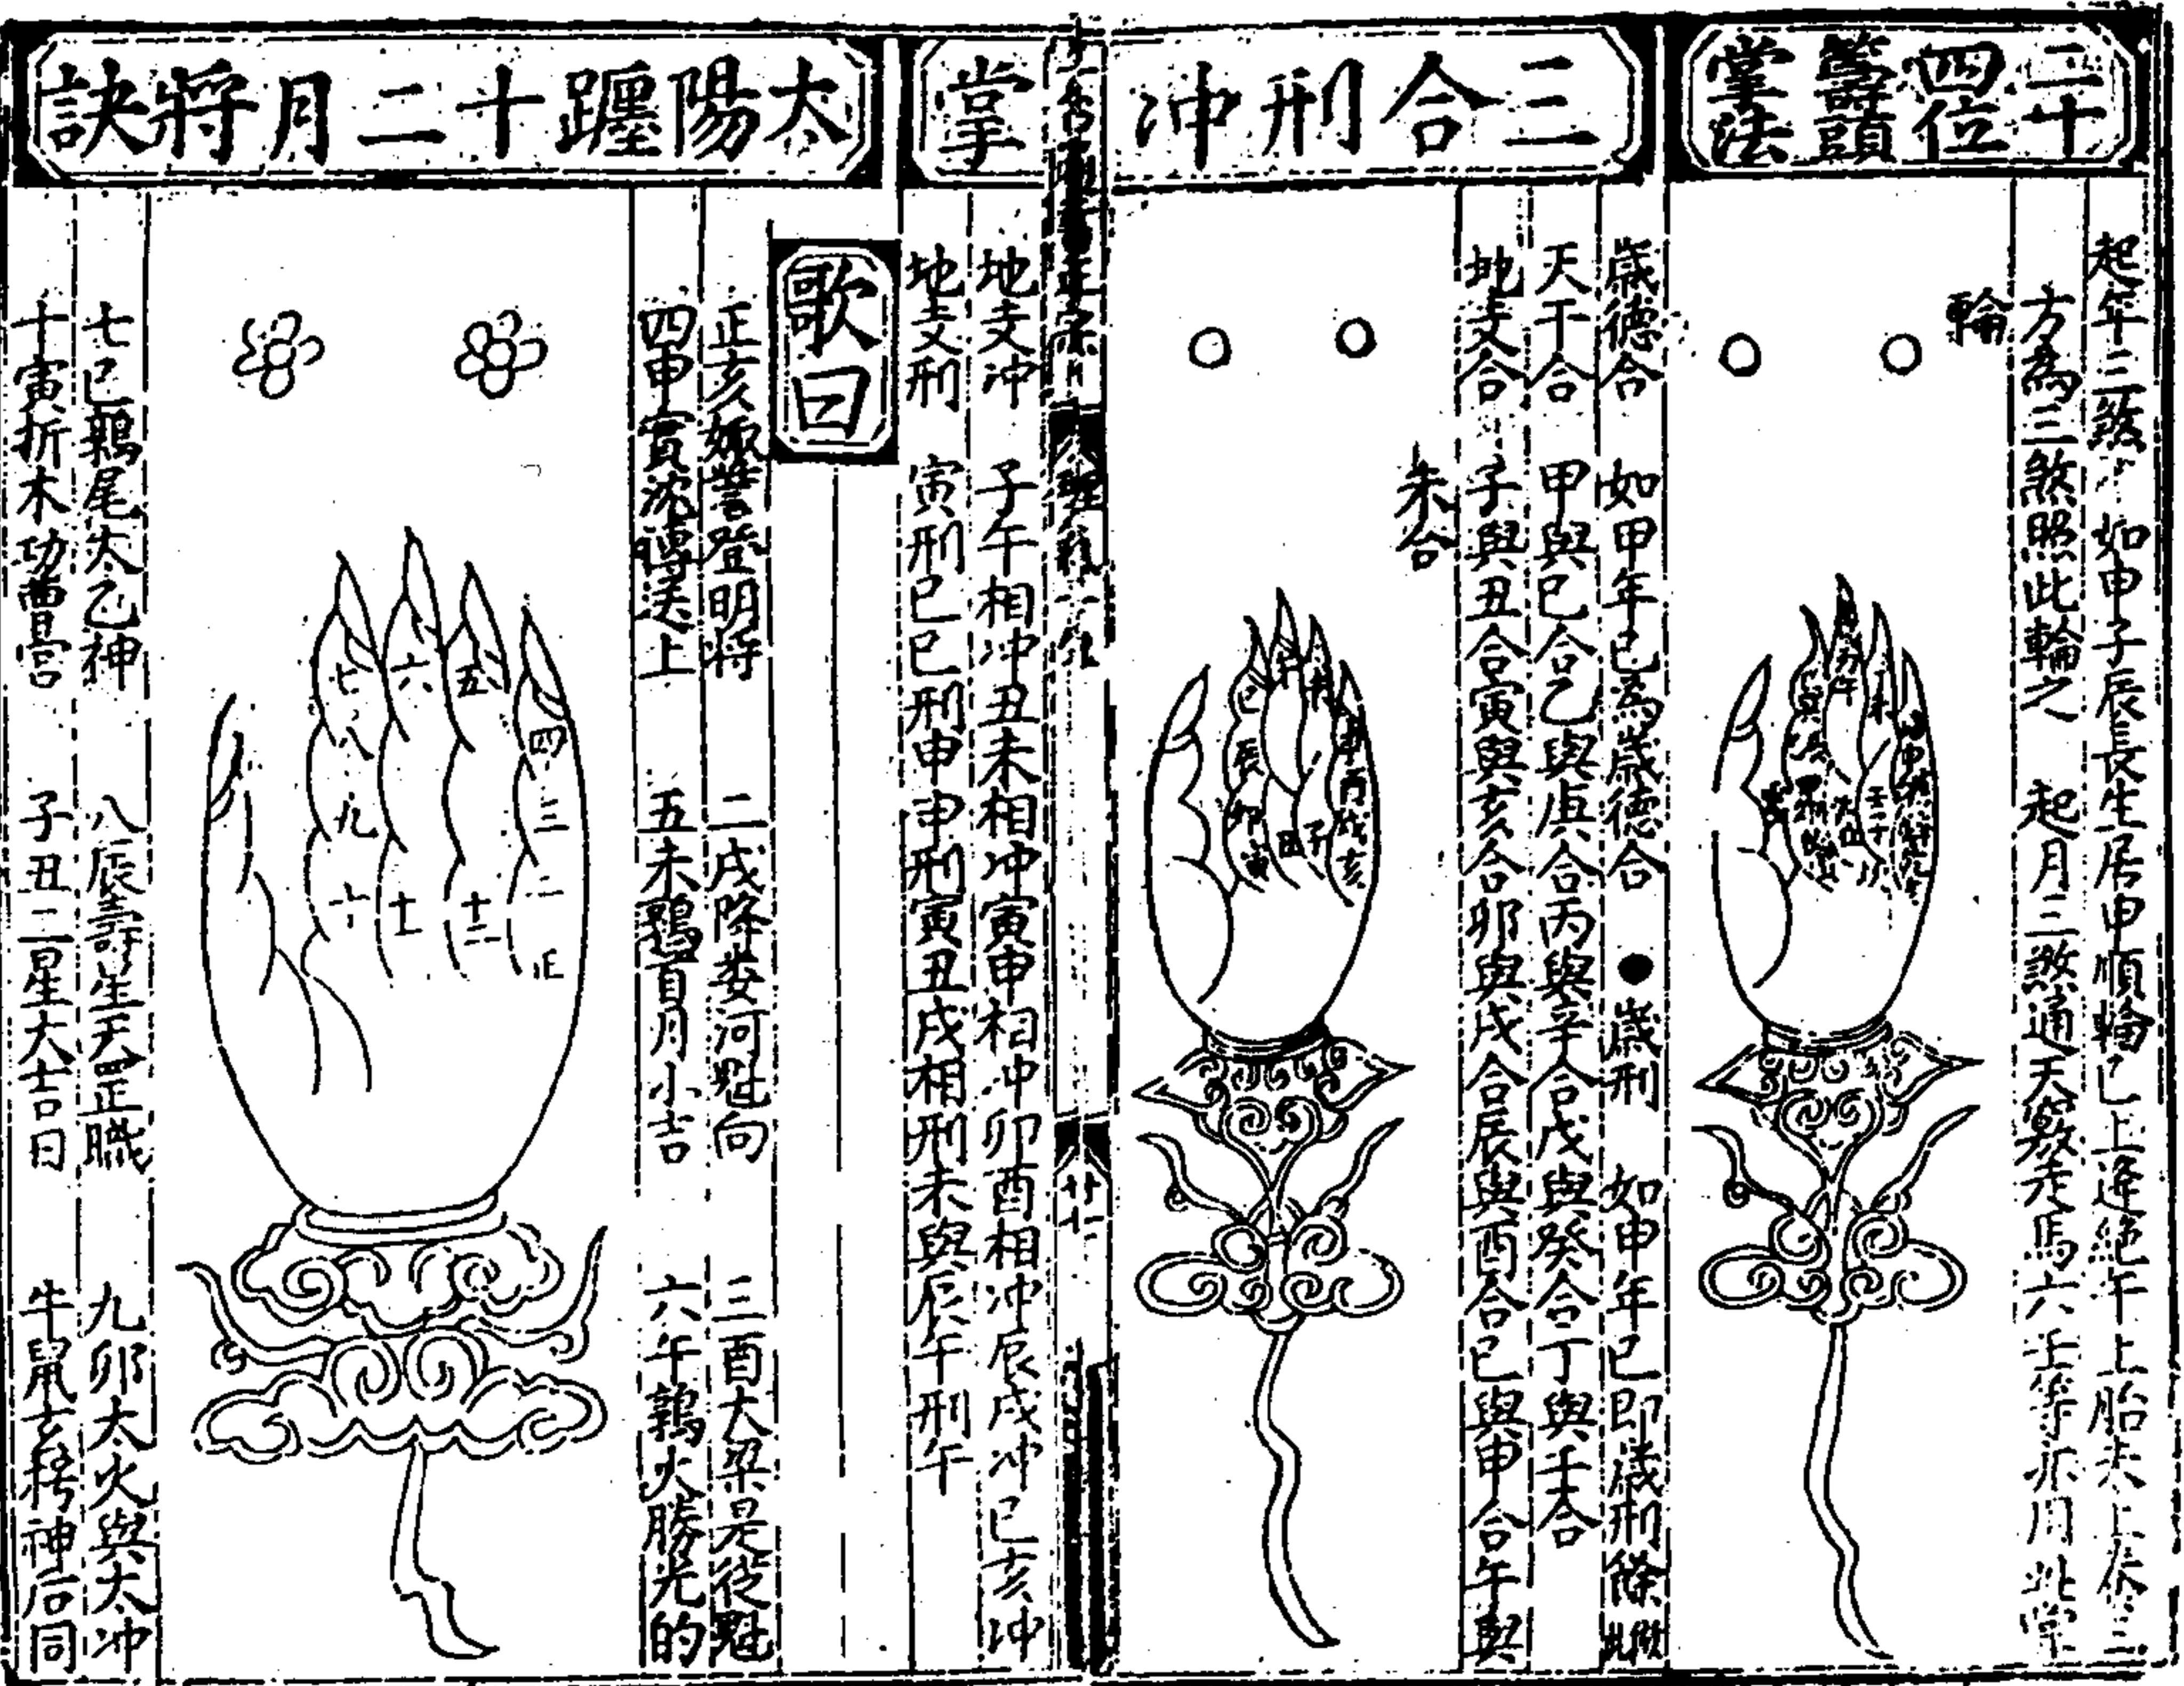 二十四位籌頭掌法
起年三煞 如申子辰長生居申順輪巳上逢絕午上胎未上養三
方為三煞照此輪之 起月三煞通天竅走馬六壬等亦用此掌
輪
三合刑冲掌
歲德合 如甲年已為歲德合 ●歲刑 如申年已即歲刑餘倣此
天干合 甲與己合乙與庚合丙與辛合戊與癸合丁與壬合
地支合 子與丑合寅與亥合卯與戌合辰與酉合巳與申合午與
未合
巳 午 未 申
辰 酉
卯 戌
寅 丑 子 亥
地支冲 子午相冲丑未相冲寅申相冲卯酉相冲辰戌冲巳亥冲
地支刑 寅刑巳巳刑申申刑寅丑戌相刑未與辰午刑午
太陽躔十二月將訣
歌曰
正亥娵訾登明將 二戌降婁河魁向 三酉大梁是從魁
四申實沈傳送上 五未鶉首月小吉 六午鶉火勝光的
七 六 五 四
八 三
九 二
十 十一 十二 正
七巳鶉尾太乙神 八辰壽星天罡職 九卯大火與太冲
十寅折木功曹宮 子丑二星大吉日 牛鼠玄枵神后同